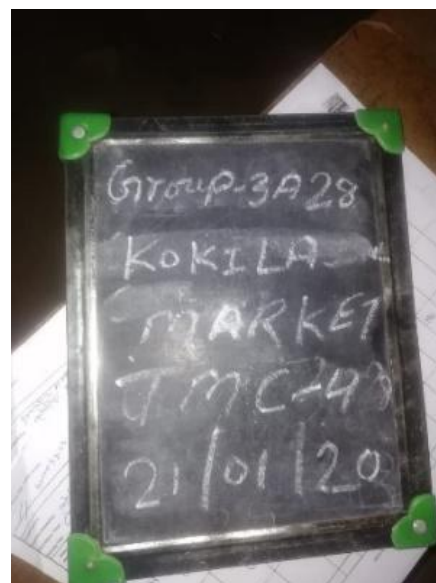 Group-3A28
KOKILA
MARKET
TMC-43
21/01/20